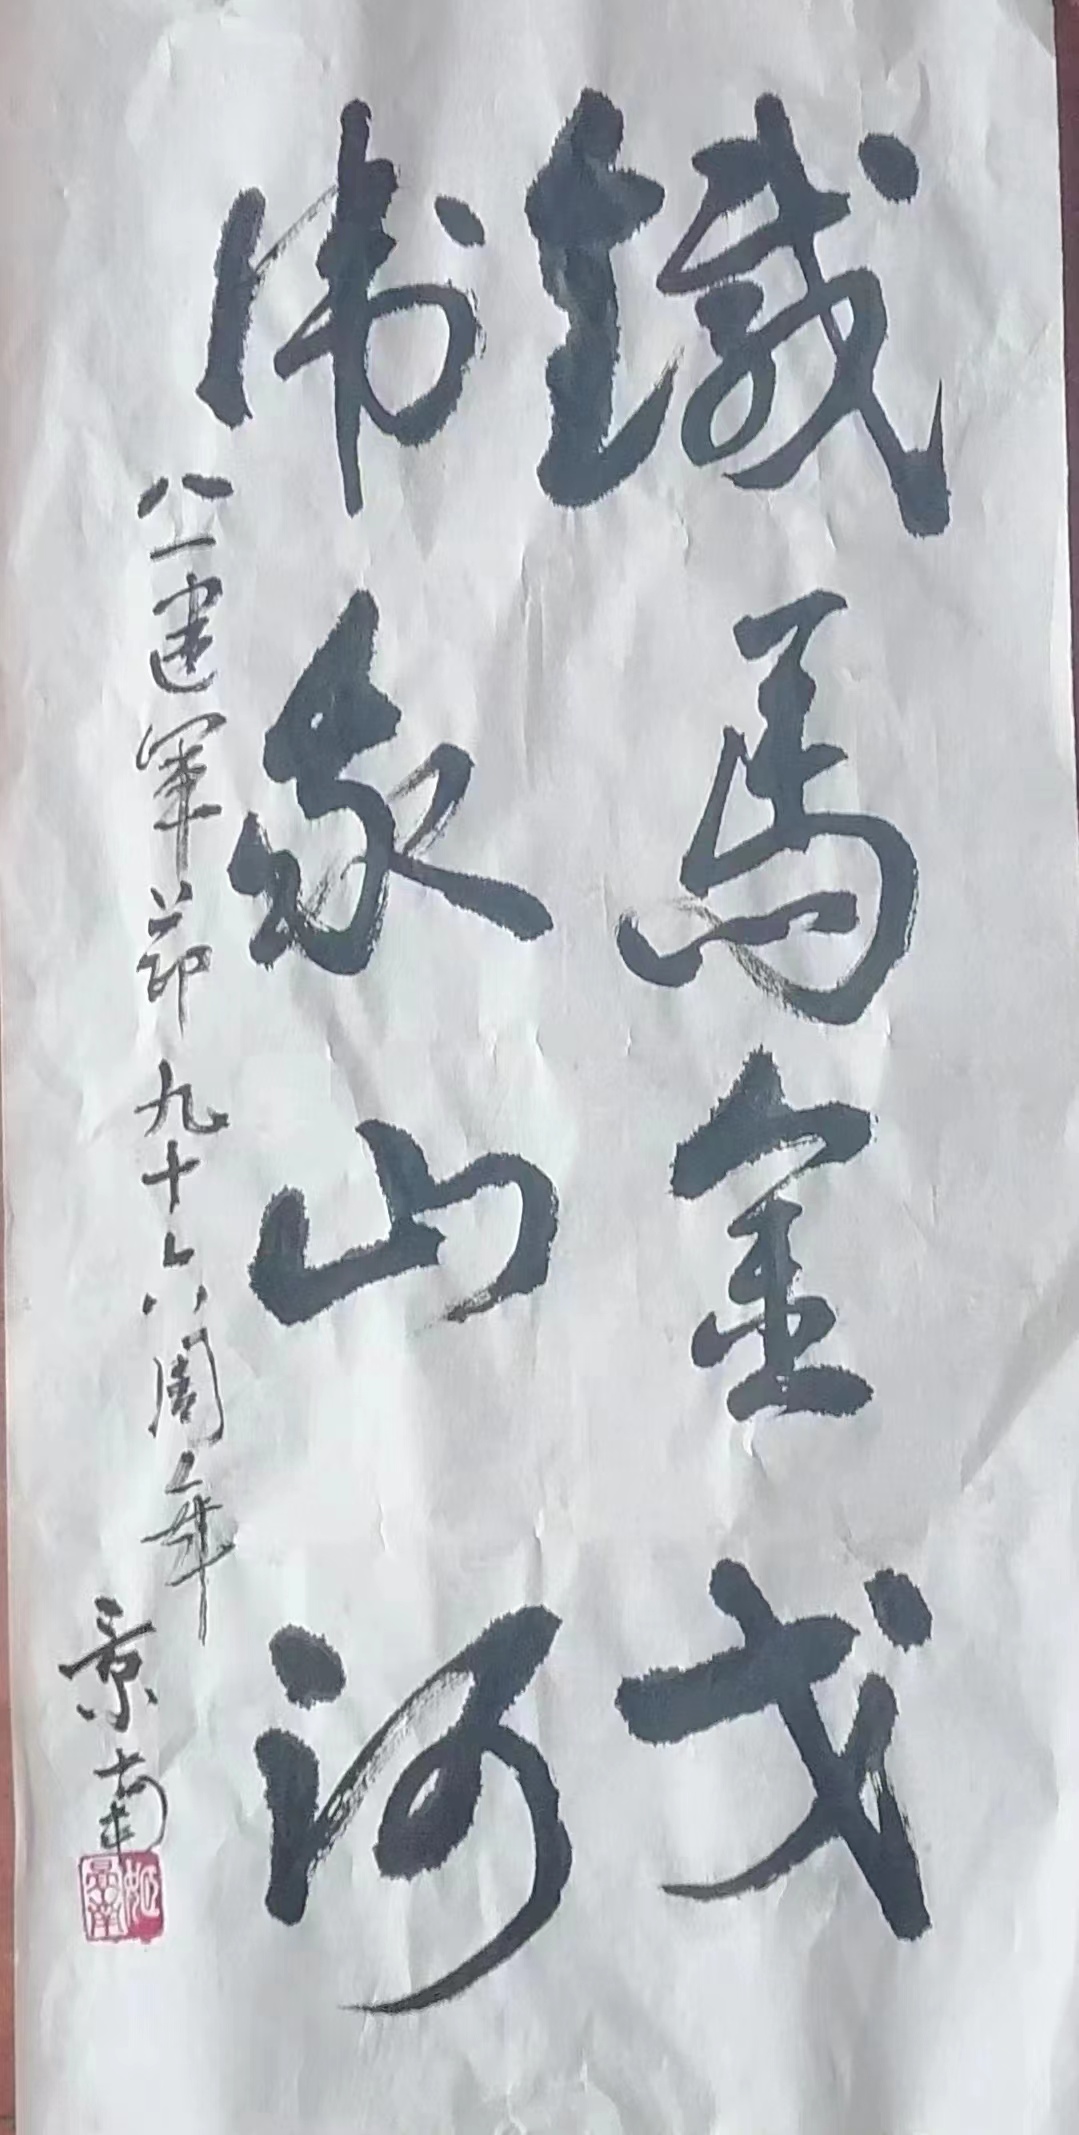 鐵馬金戈
衛我山河
八一建軍節九十六周年
景南